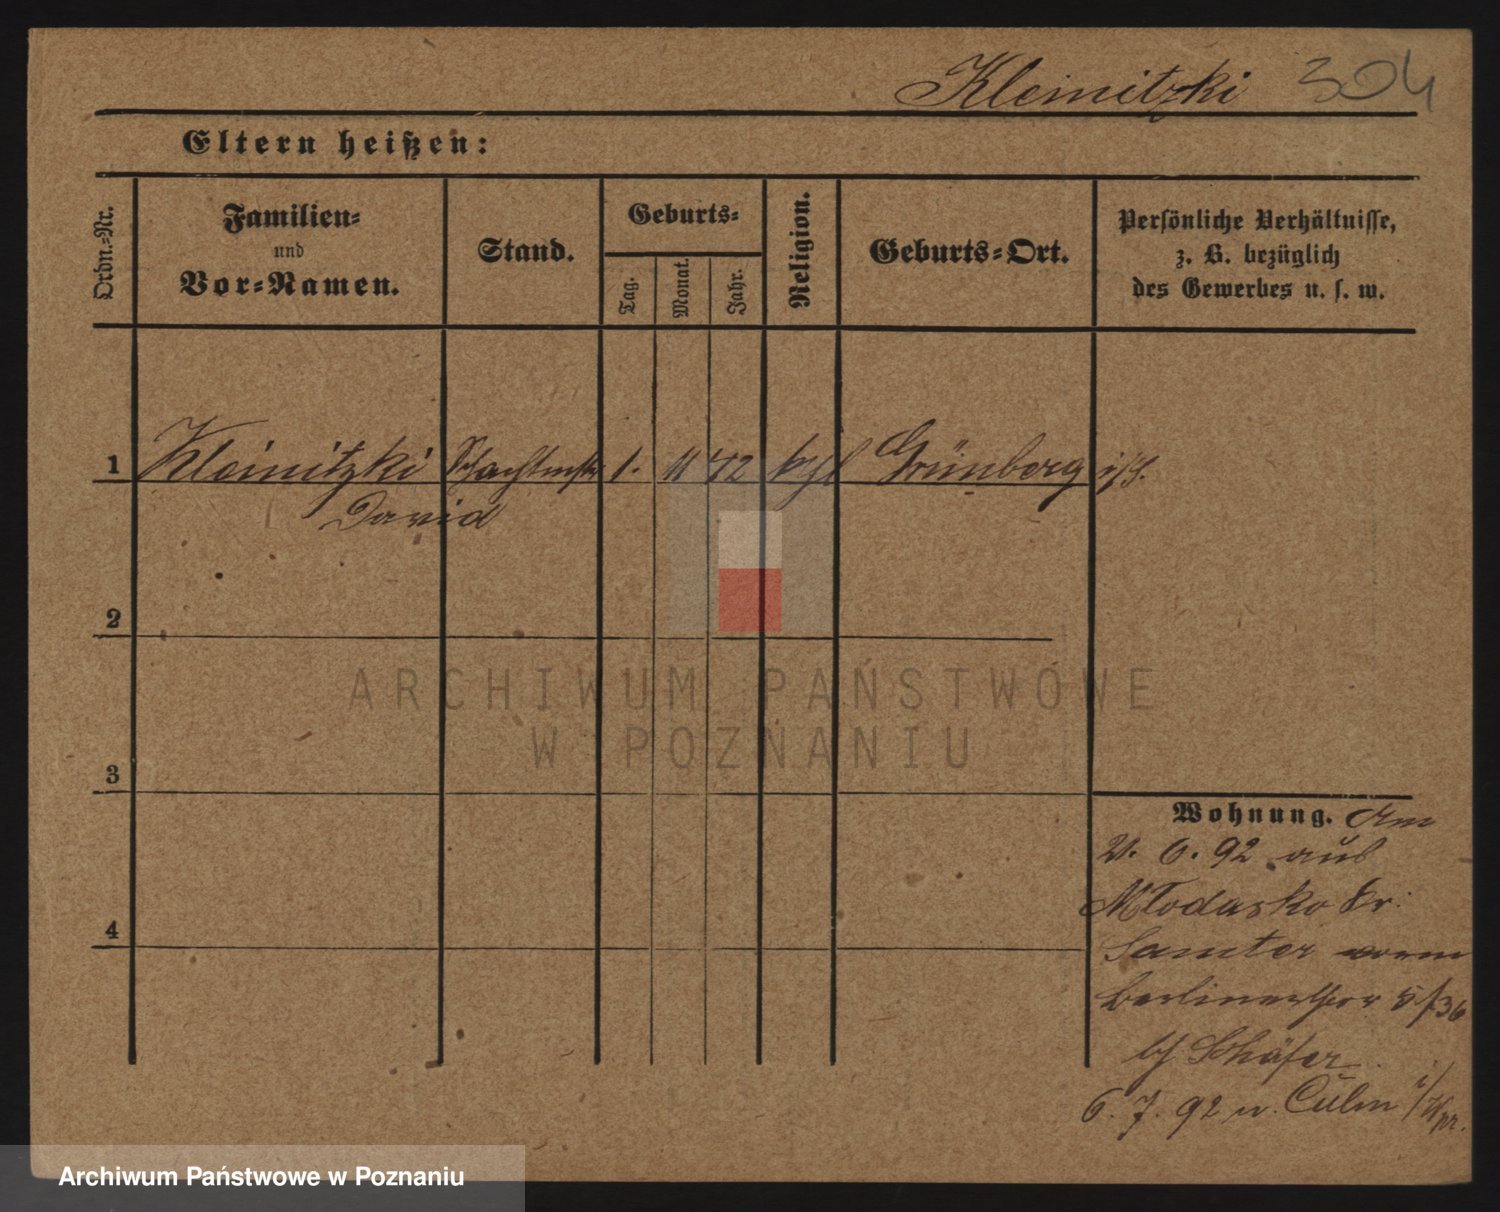 Kleinitzki 304
Eltern heißen:
Ordn.-Nr.
Familien-
und
Vor-Namen.
Stand.
Geburts-
Tag.
Monat.
Jahr.
Religion.
Geburts-Ort.
Persönliche Verhältnisse,
z. B. bezüglich
des Gewerbes u. s. w.
1 Kleinitzki Schachtmstr 1. 11 42 kgl Grünberg i/S.
David
2
3
4
Wohnung. Am
21. 6. 92 aus
Młodasko Kr.
Samter
Berlinerthor 5/36
bei Schäfer
6. 7. 92 n. Culm i/Wpr.
ARCHIWUM PAŃSTWOWE
W POZNANIU
Archiwum Państwowe w Poznaniu